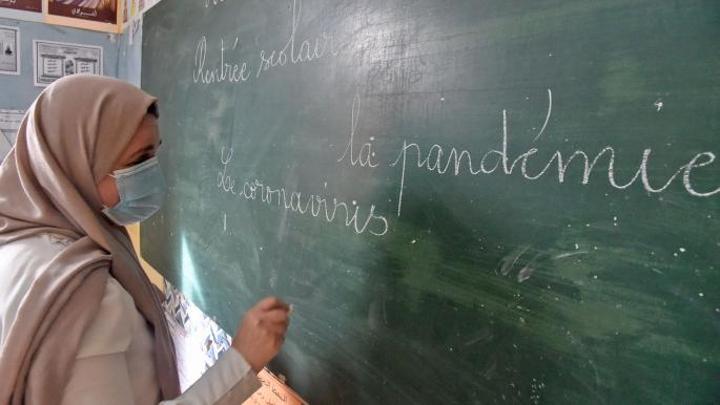 Rentrée scolair
la pandémie
Le coronavirus